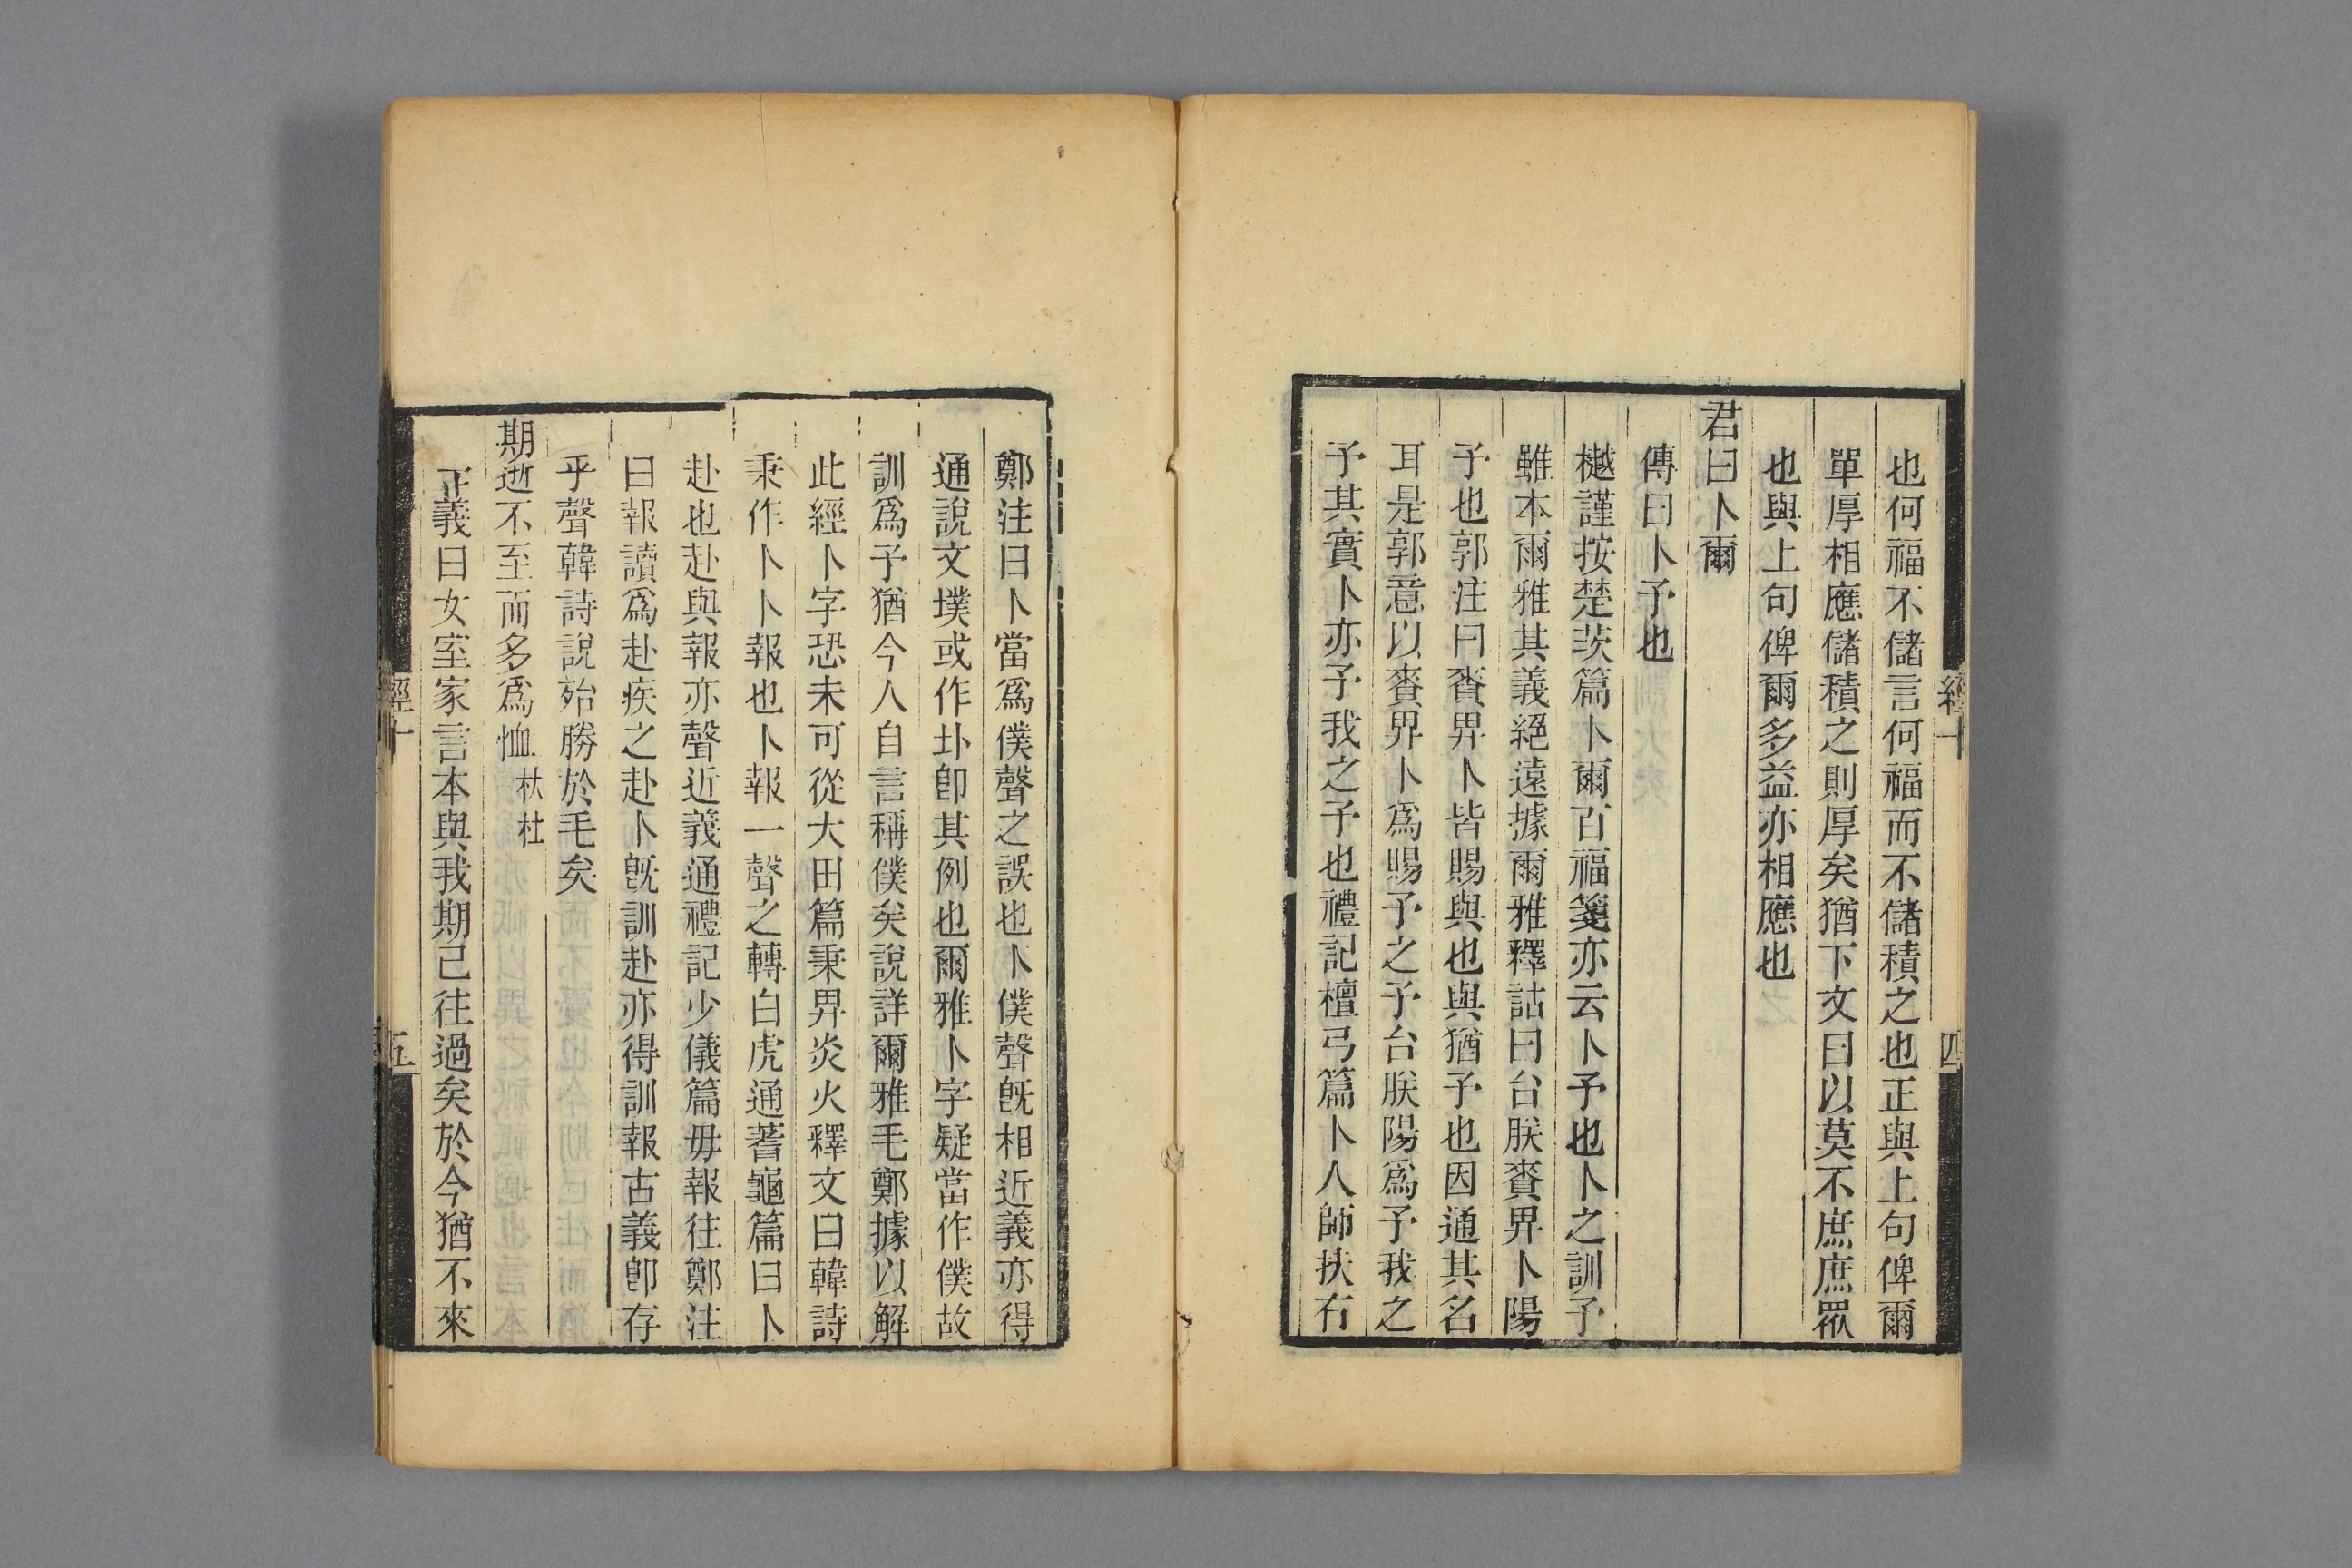 也何福不儲言何福而不儲積之也正與上句俾爾
單厚相應儲積之則厚矣猶下文曰以莫不庶庶眾
也與上句俾爾多益亦相應也
君曰卜爾
傳曰卜予也
樾謹按楚茨篇卜爾百福箋亦云卜予也卜之訓予
雖本爾雅其義絕遠據爾雅釋詁曰台朕賚畀卜陽
予也郭注曰賚畀卜皆賜與也與猶予也因通其名
耳是郭意以賚畀卜爲賜予之予台朕陽爲予我之
予其實卜亦予我之予也禮記檀弓篇卜人師扶右
鄭注曰卜當爲僕聲之誤也卜僕聲旣相近義亦得
通說文墣或作圤卽其例也爾雅卜字疑當作僕故
訓爲予猶今人自言稱僕矣說詳爾雅毛鄭據以解
此經卜字恐未可從大田篇秉畀炎火釋文曰韓詩
秉作卜卜報也卜報一聲之轉白虎通蓍龜篇曰卜
赴也赴與報亦聲近義通禮記少儀篇毋報往鄭注
曰報讀爲赴疾之赴卜旣訓赴亦得訓報古義卽存
乎聲韓詩說殆勝於毛矣
期逝不至而多爲恤 杕杜
正義曰女室家言本與我期已往過矣於今猶不來
經十
四
經十
五